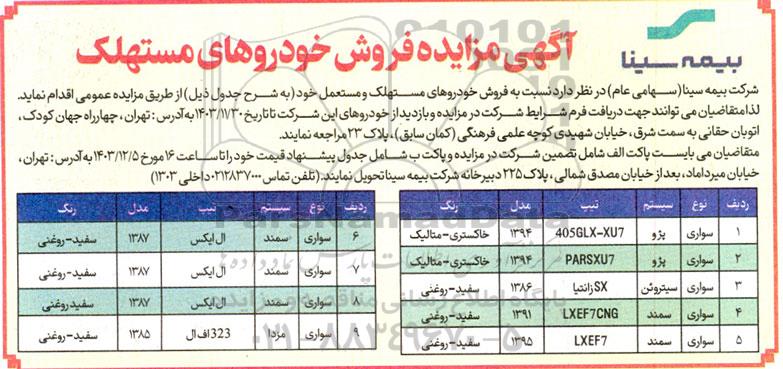 بیمه سینا
آگهی مزایده فروش خودروهای مستهلک
شرکت بیمه سینا(سهامی عام) در نظر دارد نسبت به فروش خودروهای مستهلک و مستعمل خود (به شرح جدول ذیل) از طریق مزایده عمومی اقدام نماید.
لذا متقاضیان می توانند جهت دریافت فرم شرایط شرکت در مزایده و بازدید از خودروهای این شرکت تا تاریخ ۱۴۰۳/۱۱/۳۰ به آدرس: تهران، چهارراه جهان کودک،
اتوبان حقانی به سمت شرق، خیابان شهیدی کوچه علمی فرهنگی (کمان سابق)، پلاک ۲۳ مراجعه نمایند.
متقاضیان می بایست پاکت الف شامل تضمین شرکت در مزایده و پاکت ب شامل جدول پیشنهاد قیمت خود را تا ساعت ۱۶ مورخ ۱۴۰۳/۱۲/۵ به آدرس: تهران،
خیابان میرداماد، بعد از خیابان مصدق شمالی، پلاک ۲۲۵ دبیرخانه شرکت بیمه سینا تحویل نمایند. (تلفن تماس ۰۲۱۲۸۳۷۰۰۰ داخلی ۱۳۰۳)
ردیف نوع سیستم تیپ مدل رنگ
۱ سواری پژو 405GLX-XU7 ۱۳۹۴ خاکستری-متالیک
۲ سواری پژو PARSXU7 ۱۳۹۴ خاکستری-متالیک
۳ سواری سیتروئن SX زانتیا ۱۳۸۶ سفید-روغنی
۴ سواری سمند LXEF7CNG ۱۳۹۱ سفید-روغنی
۵ سواری سمند LXEF7 ۱۳۹۵ سفید-روغنی
ردیف نوع سیستم تیپ مدل رنگ
۶ سواری سمند ال ایکس ۱۳۸۷ سفید-روغنی
۷ سواری سمند ال ایکس ۱۳۸۷ سفید-روغنی
۸ سواری سمند ال ایکس ۱۳۸۷ سفید روغنی
۹ سواری مزدا 323 اف ال ۱۳۸۵ سفید-روغنی
ParsNamadData
پایگاه اطلاع رسانی مناقصه و مزایده
۰۲۱-۸۸۳۴۹۶۷۰-۵